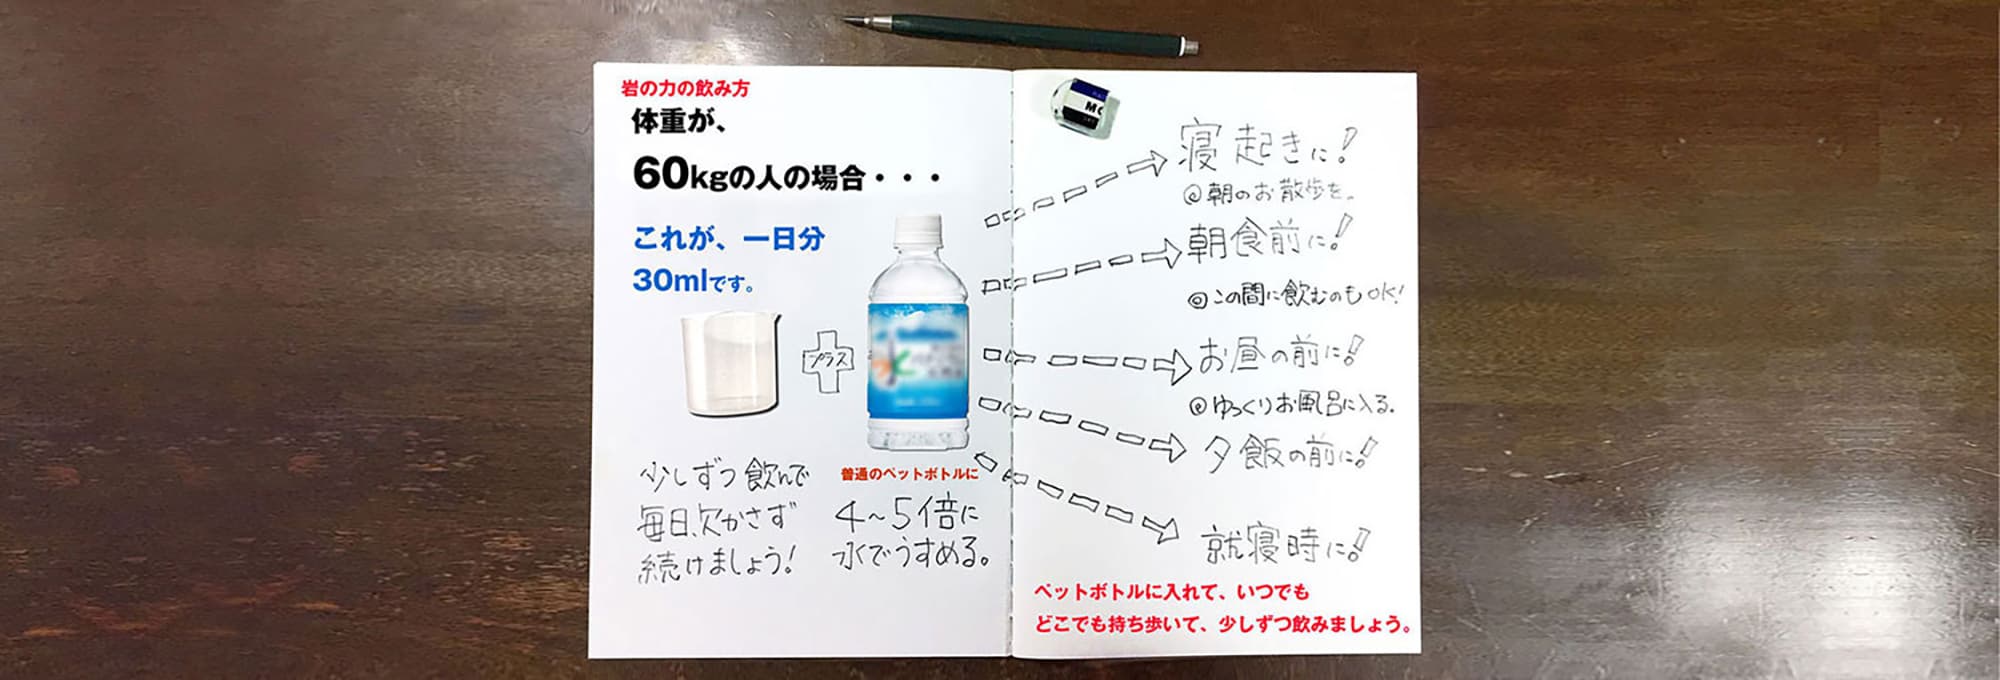 岩の力の飲み方
体重が、
60kgの人の場合・・・
これが、一日分
30mlです。
プラス
少しずつ飲んで
毎日、欠かさず
続けましょう!
普通のペットボトルに
4〜5倍に
水でうすめる。
寝起きに!
◎朝のお散歩を。
朝食前に!
◎この間に飲むのもOK!
お昼の前に!
◎ゆっくりお風呂に入る。
夕飯の前に!
就寝時に!
ペットボトルに入れて、いつでも
どこでも持ち歩いて、少しずつ飲みましょう。